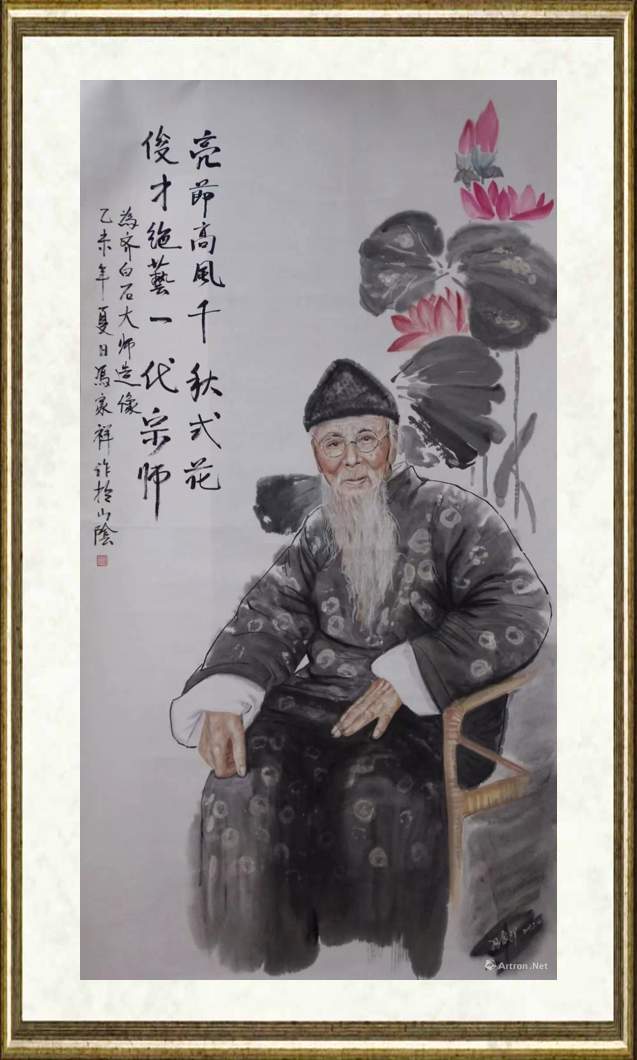 亮節高風千秋式花
俊才絶藝一代宗师
為齐白石大师造像
乙未年夏日馮家祥作於山陰
Artron.Net